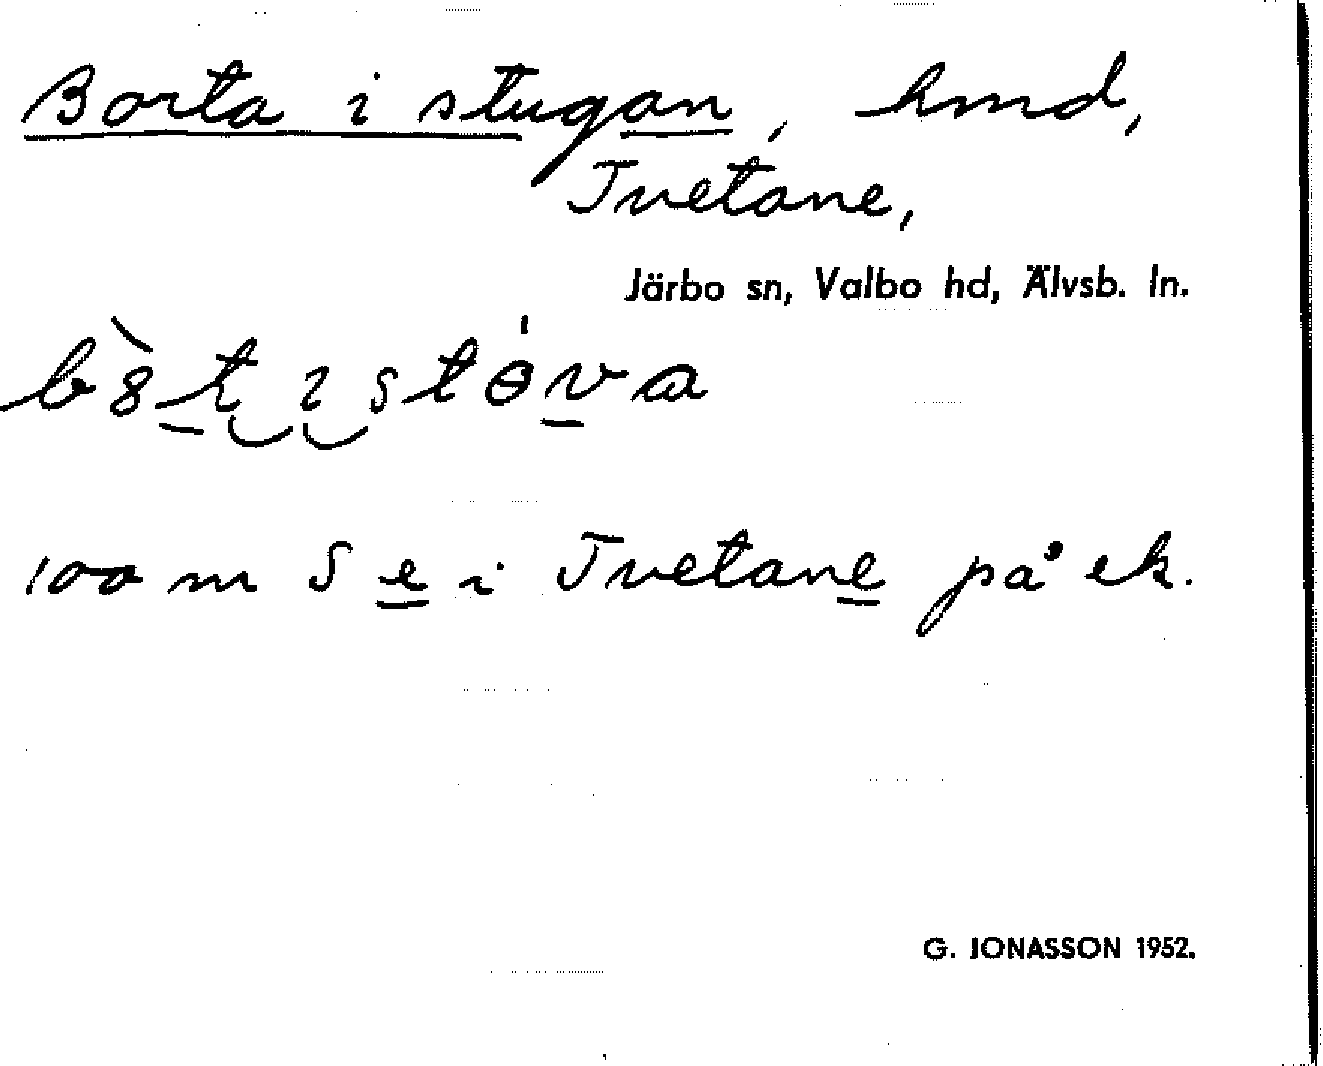 Borta i stugan, hmd,
Tvetane,
Järbo sn, Valbo hd, Älvsb. ln.
b8̀t ı stɵ́va
100 m S e i Tvetane på ek.
G. JONASSON 1952.